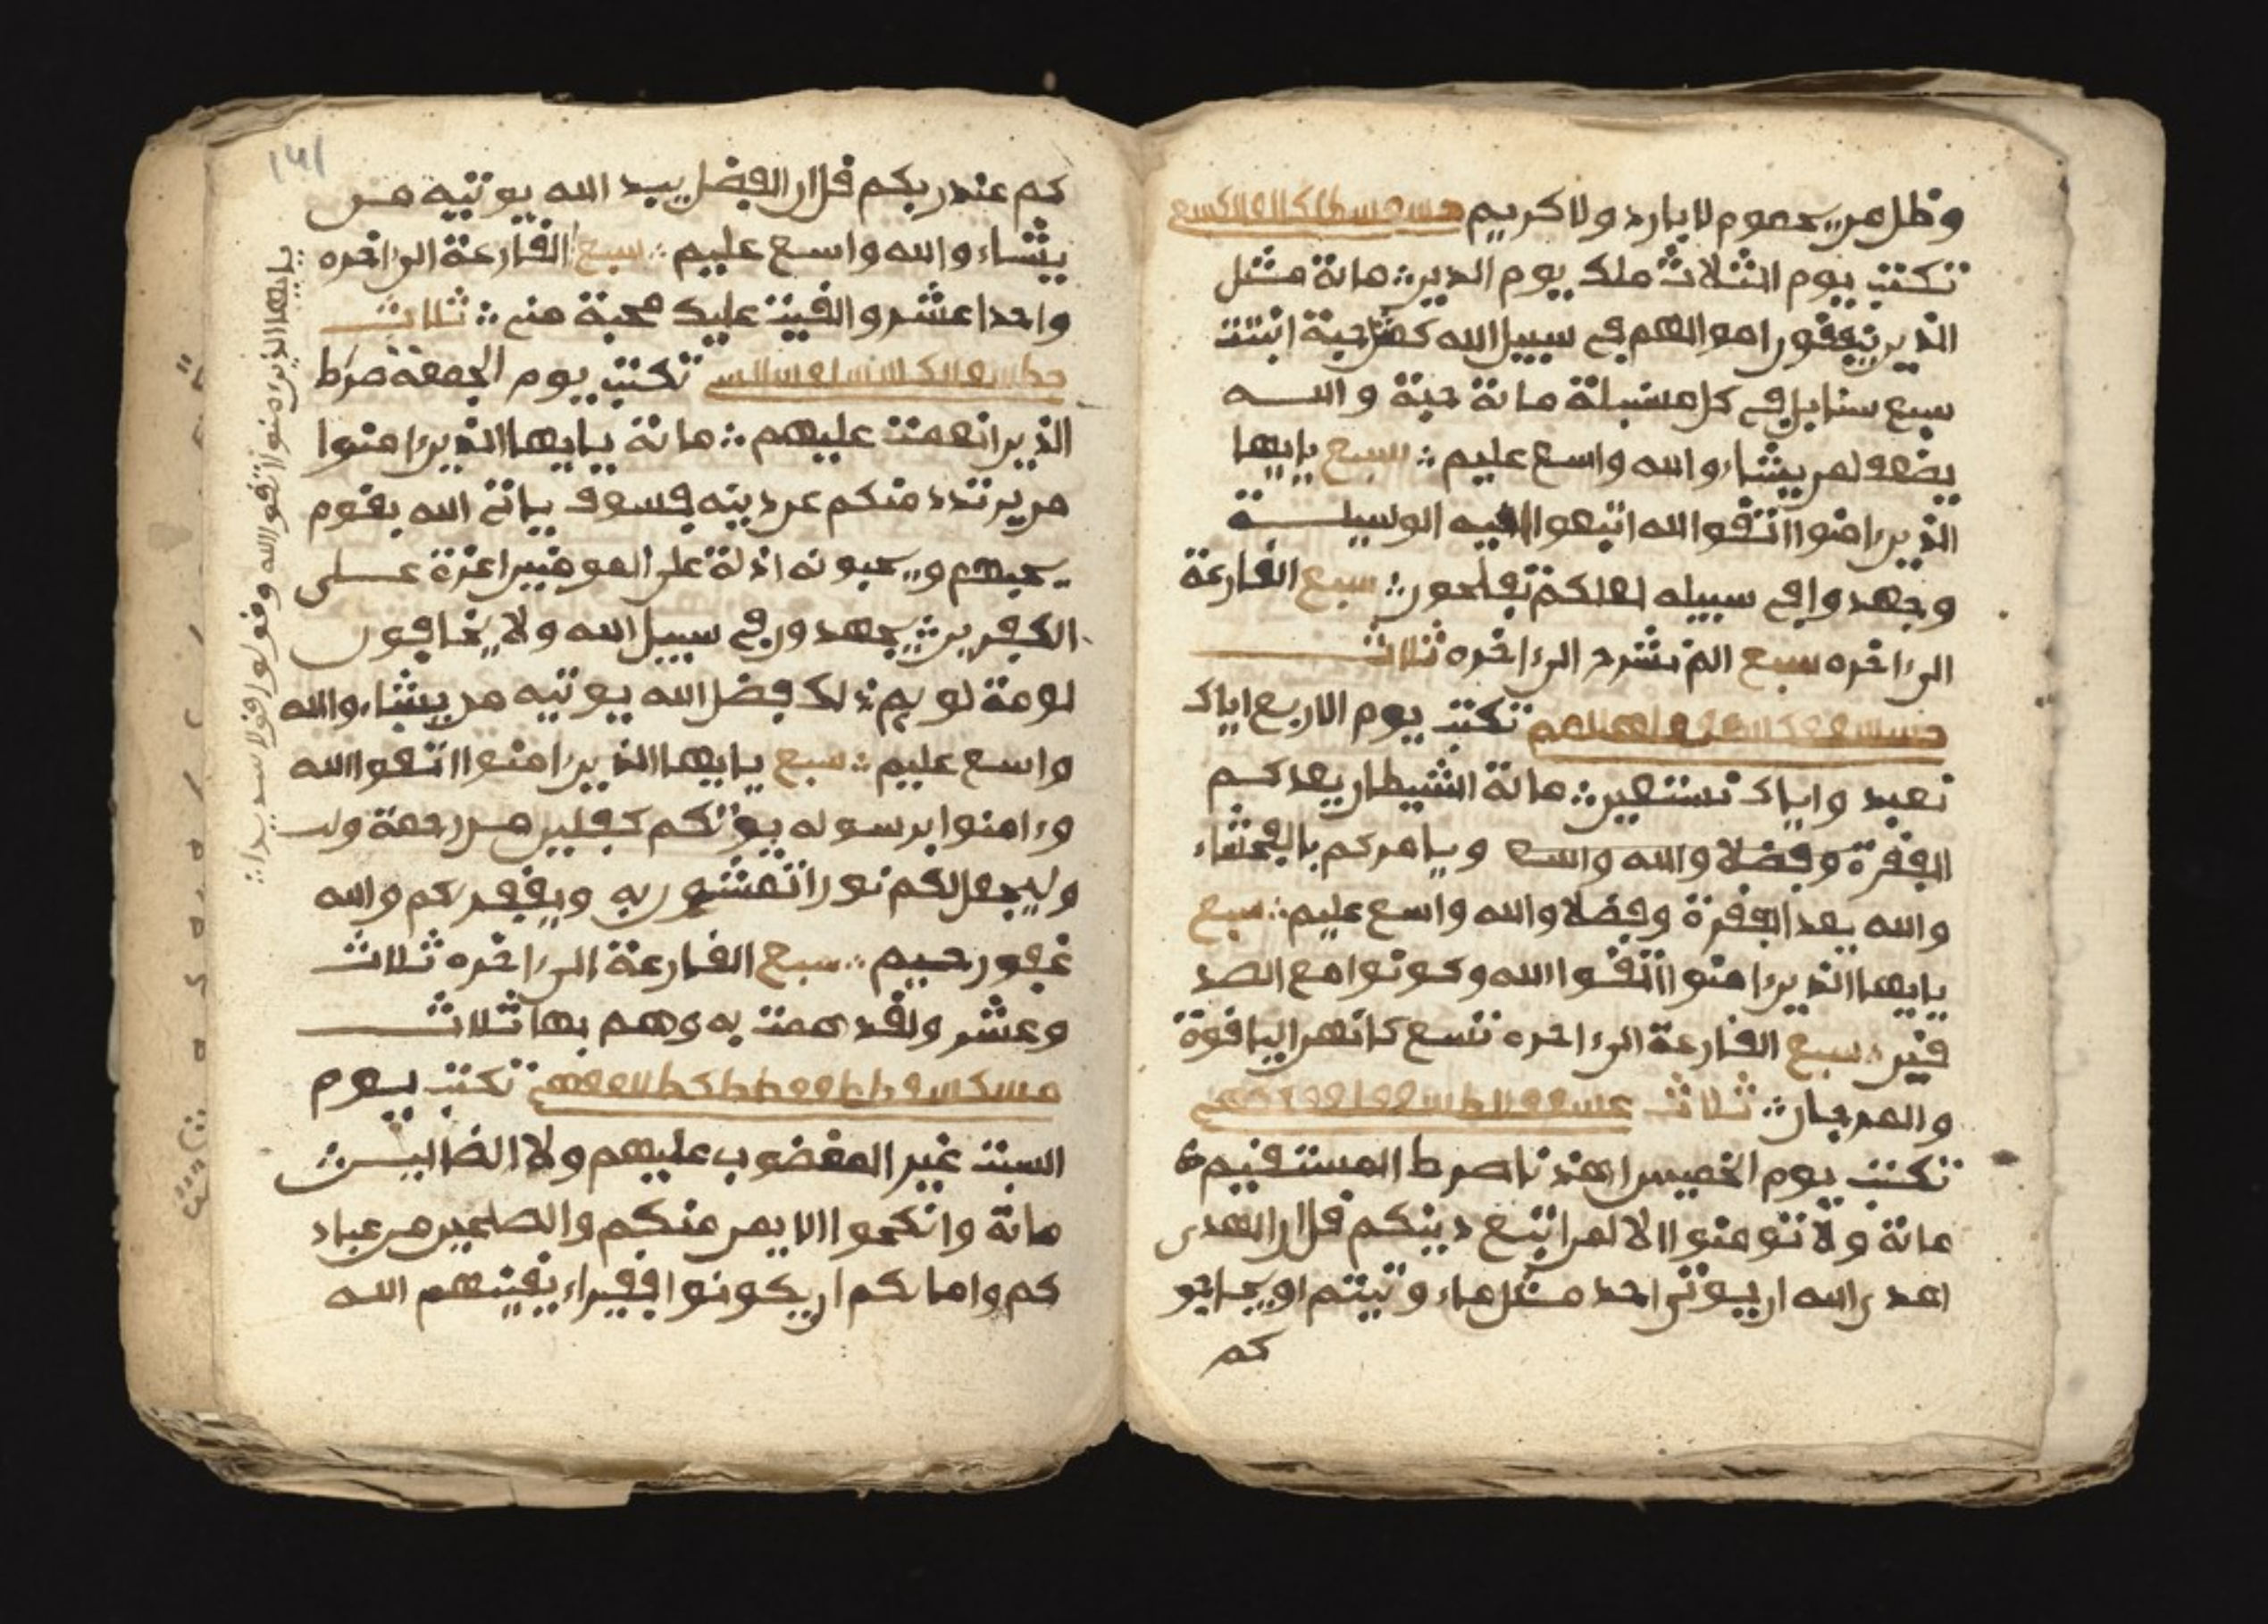 وظل من يحموم لا بارد ولا كريم
تكتب يوم الثلاث ملك يوم الدين مائة مثل
الذين ينفقون اموالهم في سبيل الله كمثل حبة انبتت
سبع سنابل في كل سنبلة مائة حبة والله
يضعف لمن يشاء والله واسع عليم سبع يايها
الذين ءامنوا اتقوا الله ابتغوا اليه الوسيلة
وجهدوا في سبيله لعلكم تفلحون سبع القارعة
الى ءاخره سبع الم نشرح الى ءاخره ثلاث
تكتب يوم الاربع اياك
نعبد واياك نستعين مائة الشيطان يعدكم
الفقرة وفضلا والله واسع ويامركم بالفحشاء
والله يعد الفقرة وفضلا والله واسع عليم سبع
يايها الذين ءامنوا اتقوا الله وكونوا مع الصد
قين سبع القارعة الى ءاخره تسع كانهن الياقوة
والمرجان ثلاث
تكتب يوم الخميس اهدنا صرط المستقيم
مائة ولا تومنوا الا لمن اتبع دينكم قل ان الهدى
اهدى الله ان يوتى احد مثل ماء وتيتم او يحاجو
كم
كم عند ربكم قل ان الفضل بيد الله يوتيه من
يشاء والله واسع عليم سبع القارعة الى ءاخره
واحد اعشر والقيت عليك محبة مني ثلاث
تكتب يوم الجمعة صرط
الذين انعمت عليهم مائة يايها الذين ءامنوا
من يرتدد منكم عن دينه فسوف ياتي الله بقوم
يحبهم ويحبونه اذلة على المومنين اعزة على
الكفرين يجهدون في سبيل الله ولا يخافون
لومة لويم ذلك فضل الله يوتيه من يشاء والله
واسع عليم سبع يايها الذين ءامنوا اتقوا الله
وءامنوا برسوله يوتكم كفلين من رحمة ولـ
وليجعل لكم نورا تمشون به ويغفر لكم والله
غفور رحيم سبع القارعة الى ءاخره ثلاث
وعشر ولقد همت به وهم بها ثلاث
تكتب يوم
السبت غير المغضوب عليهم ولا الضالين
مائة وانكحوا الايمن منكم والصلحين من عباد
كم وامائكم ان يكونوا فقيراء يغنيهم الله
يايها الذين ءامنوا اتقوا الله وقولوا قولا سديدا